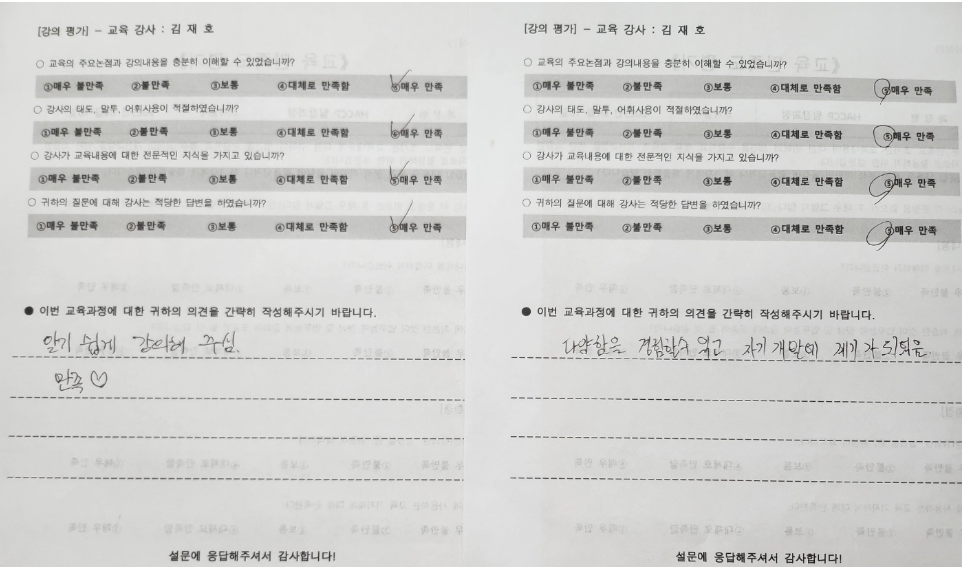 [강의 평가] - 교육 강사 : 김 재 호
○ 교육의 주요논점과 강의내용을 충분히 이해할 수 있었습니까?
①매우 불만족 ②불만족 ③보통 ④대체로 만족함 ⑤매우 만족
○ 강사의 태도, 말투, 어휘사용이 적절하였습니까?
①매우 불만족 ②불만족 ③보통 ④대체로 만족함 ⑤매우 만족
○ 강사가 교육내용에 대한 전문적인 지식을 가지고 있습니까?
①매우 불만족 ②불만족 ③보통 ④대체로 만족함 ⑤매우 만족
○ 귀하의 질문에 대해 강사는 적당한 답변을 하였습니까?
①매우 불만족 ②불만족 ③보통 ④대체로 만족함 ⑤매우 만족
● 이번 교육과정에 대한 귀하의 의견을 간략히 작성해주시기 바랍니다.
알기 쉽게 강의해 주심.
만족♡
설문에 응답해주셔서 감사합니다!
[강의 평가] - 교육 강사 : 김 재 호
○ 교육의 주요논점과 강의내용을 충분히 이해할 수 있었습니까?
①매우 불만족 ②불만족 ③보통 ④대체로 만족함 ⑤매우 만족
○ 강사의 태도, 말투, 어휘사용이 적절하였습니까?
①매우 불만족 ②불만족 ③보통 ④대체로 만족함 ⑤매우 만족
○ 강사가 교육내용에 대한 전문적인 지식을 가지고 있습니까?
①매우 불만족 ②불만족 ③보통 ④대체로 만족함 ⑤매우 만족
○ 귀하의 질문에 대해 강사는 적당한 답변을 하였습니까?
①매우 불만족 ②불만족 ③보통 ④대체로 만족함 ⑤매우 만족
● 이번 교육과정에 대한 귀하의 의견을 간략히 작성해주시기 바랍니다.
다양함을 경험할수 있고 자기개발에 계기가 되었음
설문에 응답해주셔서 감사합니다!